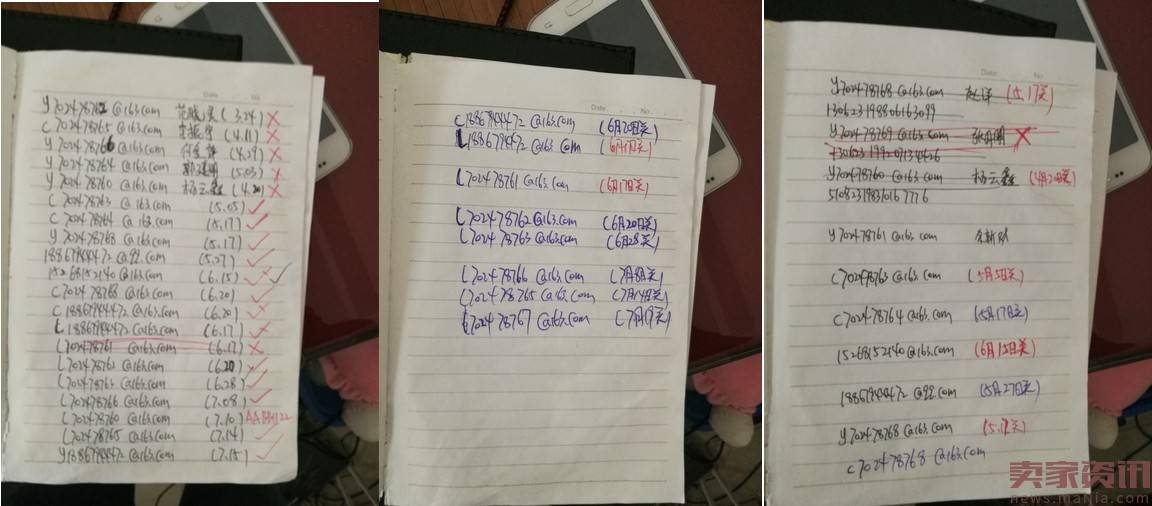 Date No
y702478762@163.com (3.24) ×
c702478765@163.com (4.11) ×
y702478766@163.com (4.29) ×
y702478764@163.com (5.03) ×
y702478760@163.com 杨云鑫 (4.20) ×
c702478763@163.com (5.05) ✓
c702478764@163.com (5.17) ✓
y702478768@163.com (5.17) ✓
18867944472@qq.com (5.27) ✓
15268152140@163.com (6.15) ✓
c702478768@163.com (6.20) ✓
c18867944472@163.com (6.20)
L18867944472@163.com (6.17) ×
L702478761@163.com (6.17) ×
L702478762@163.com (6.20)
L702478763@163.com (6.28) ✓
L702478766@163.com (7.08) ✓
L702478760@163.com (7.10)
L702478765@163.com (7.14) ✓
y18867944472@163.com (7.15) ✓
Date No
c18867944472@163.com (6月20日关)
L18867944472@163.com
L702478761@163.com (6月17日关)
L702478762@163.com (6月20日关)
L702478763@163.com (6月28关)
L702478766@163.com (7月8日关)
L702478765@163.com (7月14日关)
L702478767@163.com
Date No
y702478768@163.com (5.17关)
y702478769@163.com ×
y702478760@163.com 杨云鑫 (4月20日关)
y702478761@163.com
c702478763@163.com (5月5日关)
c702478764@163.com (5月17日关)
15268152140@163.com (6月15日关)
18867944472@qq.com (5月27日关)
y702478768@163.com (5.17关)
c702478768@163.com
卖家资讯
news.maijia.com